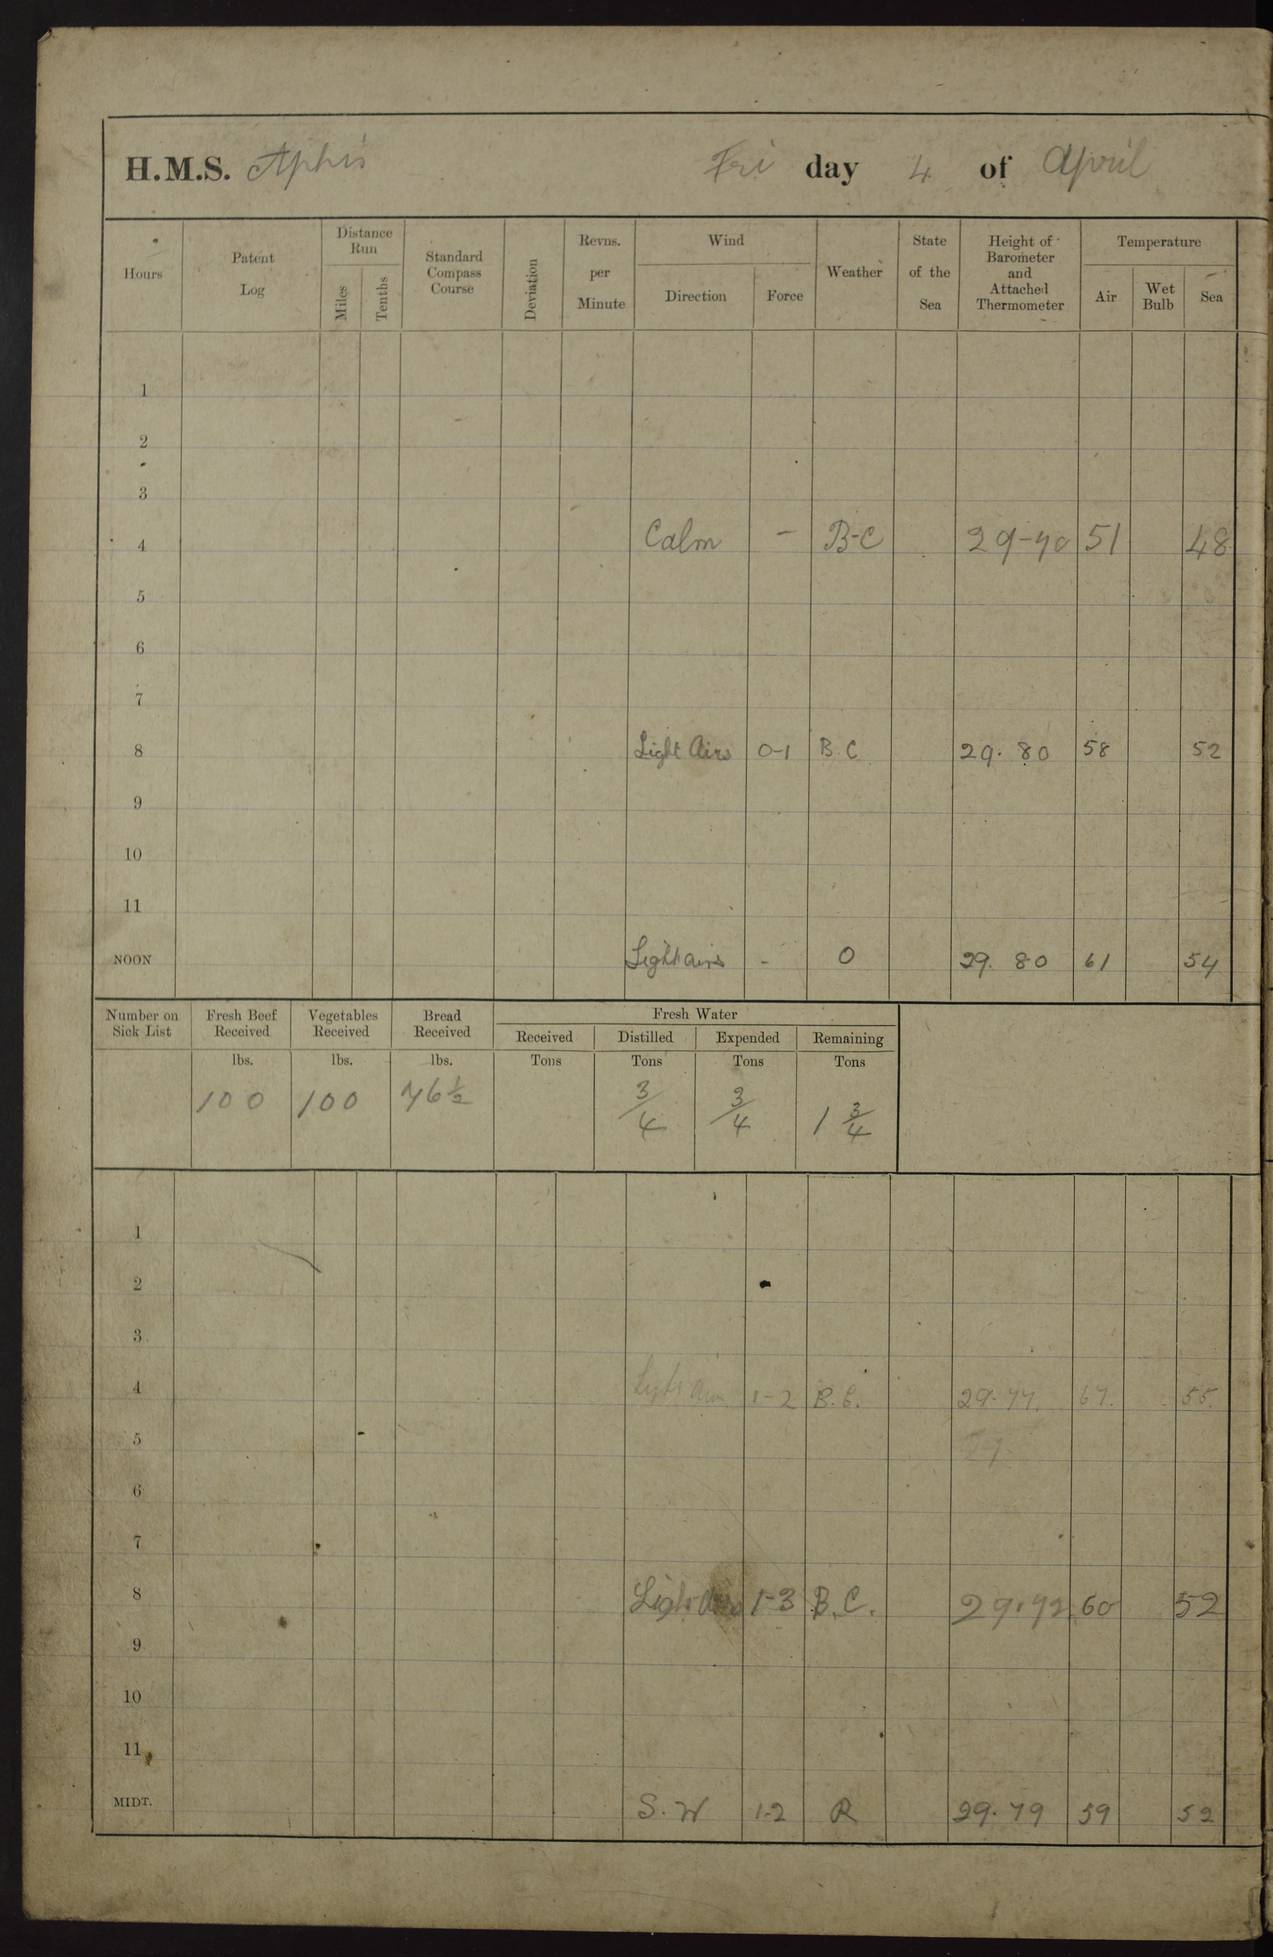 H.M.S. Aphis Fri day 4 of April
Hours Patent Log Distance Run Miles Tenths Standard Compass Course Deviation Revns. per Minute Wind Direction Force Weather State of the Sea Height of Barometer and Attached Thermometer Temperature Air Wet Bulb Sea
1
2
3
4 Calm - B-C 29-70 51 48
5
6
7
8 Light Airs 0-1 B.C 29.80 58 52
9
10
11
NOON Light airs - O 29.80 61 54
Number on Sick List Fresh Beef Received Vegetables Received Bread Received Fresh Water
Received Distilled Expended Remaining
lbs. lbs. lbs. Tons Tons Tons Tons
100 100 76½ 3/4 3/4 1 3/4
1
2
3
4 Light Airs 1-2 B.C. 29.77. 67. 55.
5
6
7
8 Light Airs 1-3 B.C. 29.72 60 52
9
10
11
MIDT. S.W 1-2 R 29.79 59 52